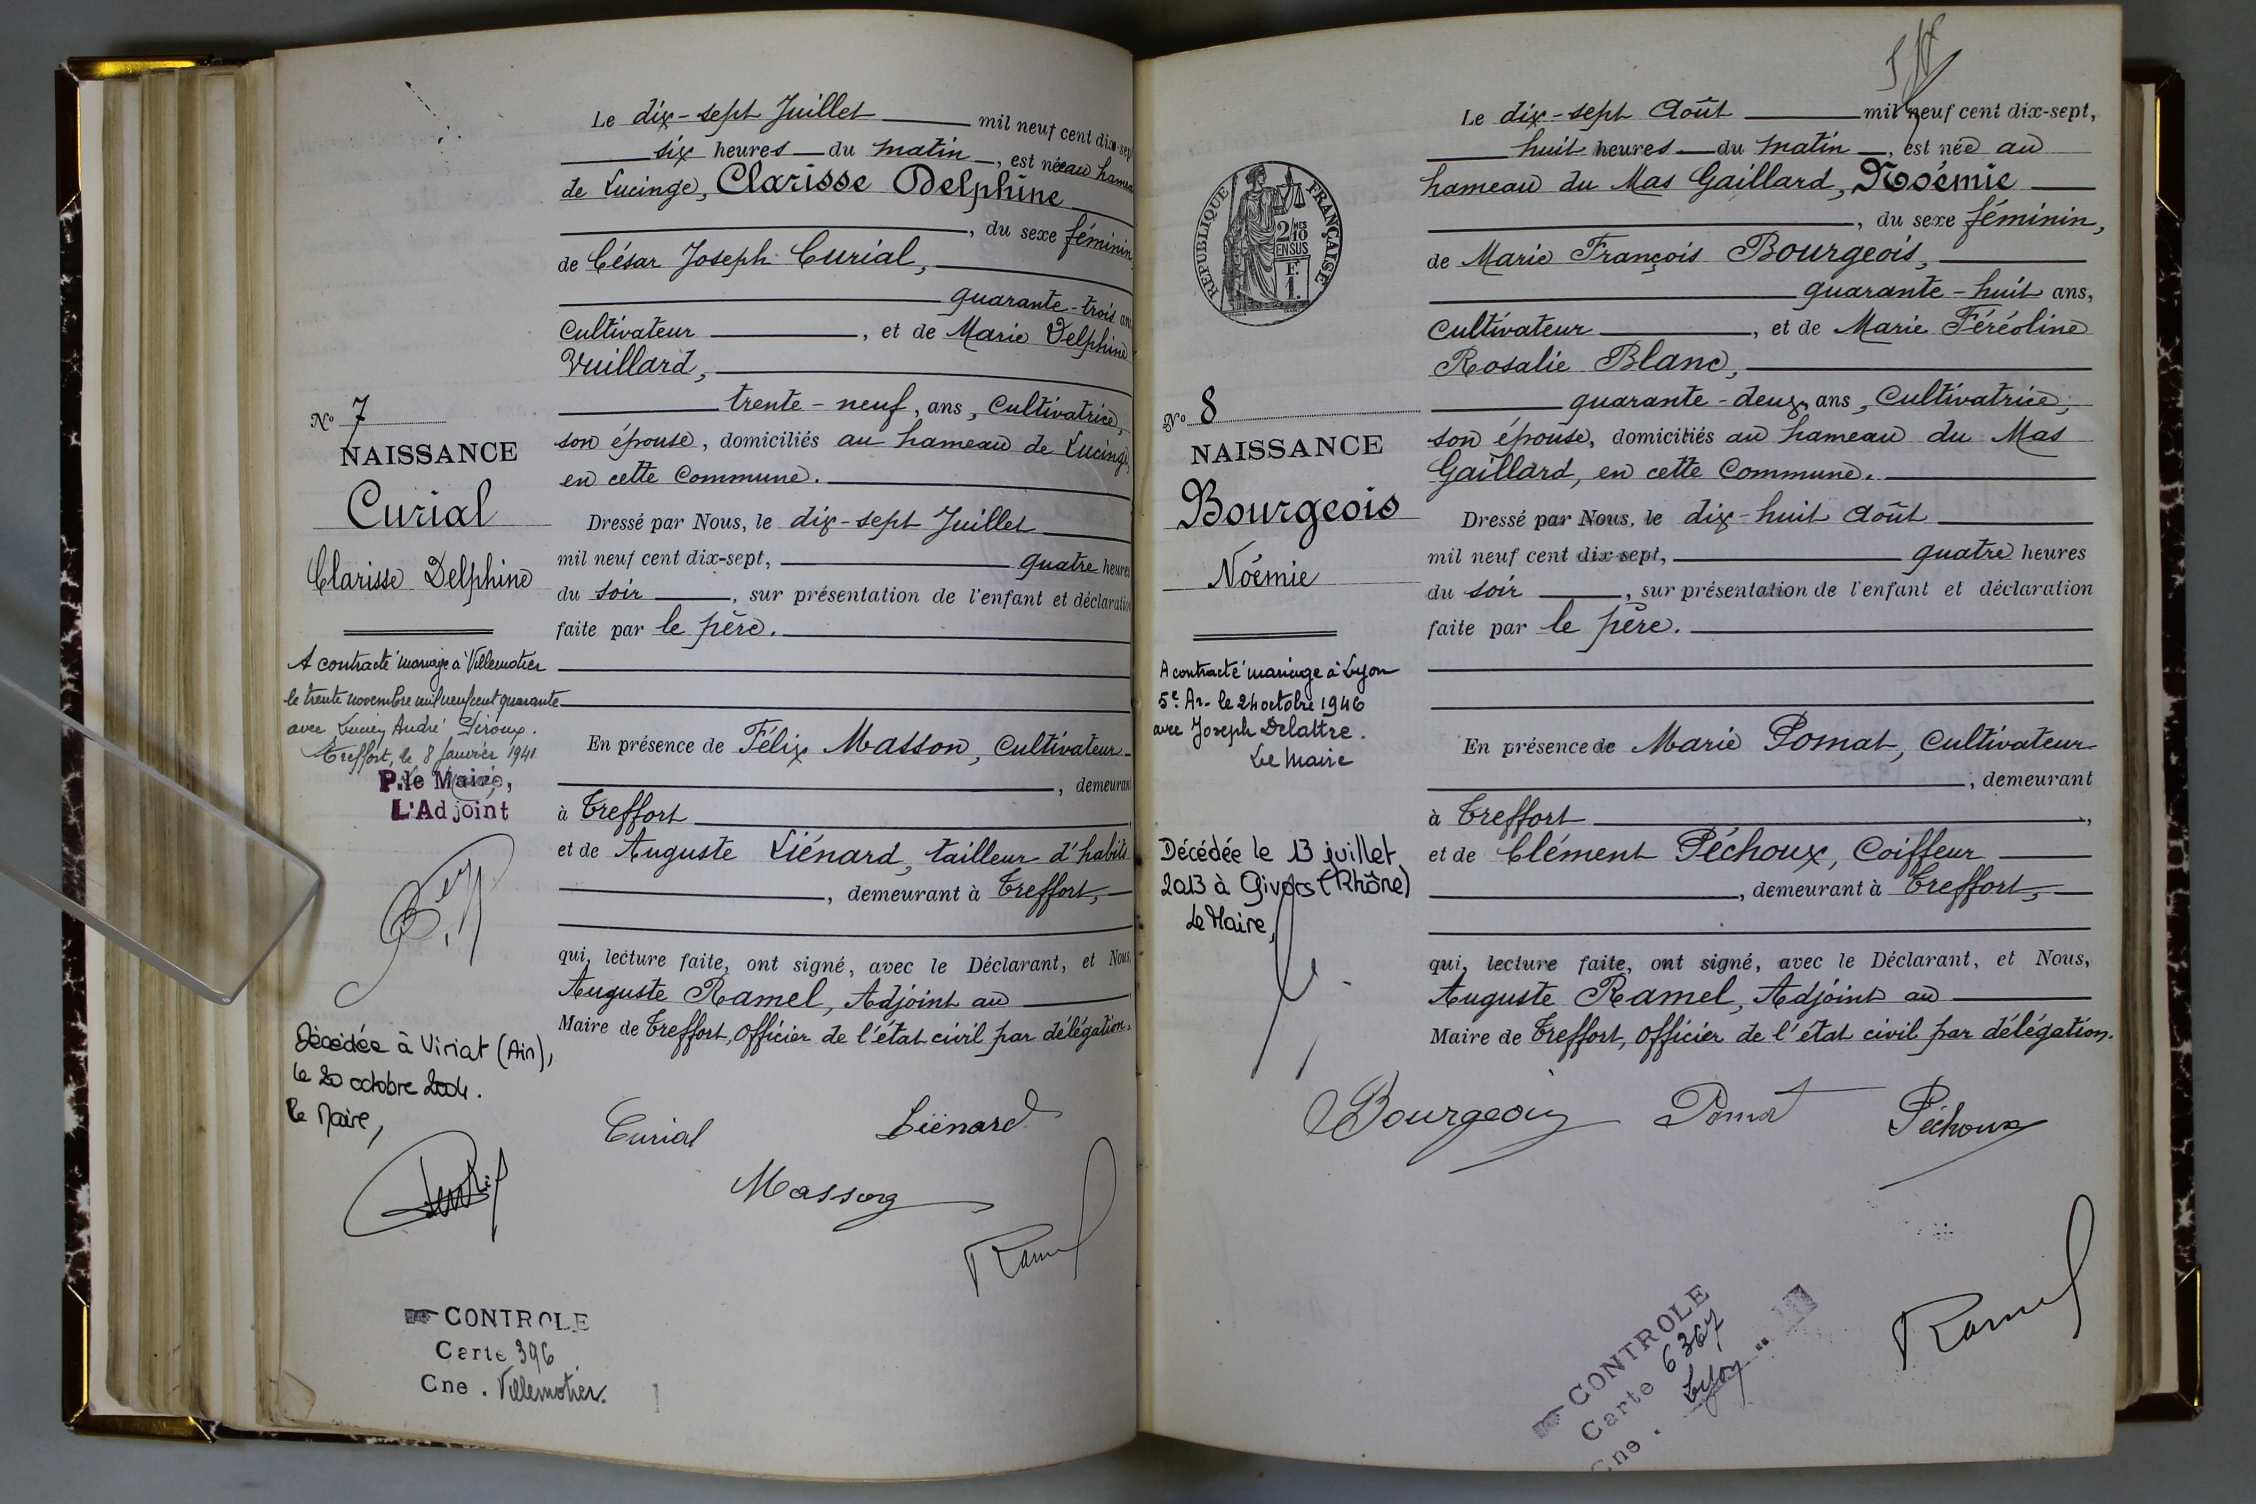 Le dix-sept Juillet mil neuf cent dix-sept
six heures du matin, est née au hameau
de Lucinge, Clarisse Delphine
, du sexe féminin,
de César Joseph Curial,
quarante-trois ans
Cultivateur, et de Marie Delphine
Vuillard,
trente-neuf, ans, Cultivatrice,
son épouse, domiciliés au hameau de Lucinge,
en cette Commune.
Dressé par Nous, le dix-sept Juillet
mil neuf cent dix-sept, quatre heures
du soir, sur présentation de l'enfant et déclaration
faite par le père.
En présence de Félix Masson, Cultivateur
, demeurant
à Treffort
et de Auguste Liénard, tailleur d'habits
, demeurant à Treffort,
qui, lecture faite, ont signé, avec le Déclarant, et Nous,
Auguste Ramel, Adjoint au
Maire de Treffort, Officier de l'état civil par délégation.
Curial Liénard
Masson
Ramel
No 7
NAISSANCE
Curial
Clarisse Delphine
A contracté mariage à Villemotier
le trente novembre mil neuf cent quarante
avec Lucien André Péroux.
Treffort, le 8 Janvier 1941
P. le Maire,
L'Adjoint
Décédée à Viriat (Ain),
le 20 octobre 2004.
Le Maire,
CONTROLE
Carte 396
Cne. Villemotier.
Le dix-sept Août mil neuf cent dix-sept,
huit heures du matin, est née au
hameau du Mas Gaillard, Noémie
, du sexe féminin,
de Marie François Bourgeois,
quarante-huit ans,
Cultivateur, et de Marie Féréoline
Rosalie Blanc,
quarante-deux, ans, Cultivatrice,
son épouse, domiciliés au hameau du Mas
Gaillard, en cette Commune.
Dressé par Nous, le dix-huit Août
mil neuf cent dix-sept, quatre heures
du soir, sur présentation de l'enfant et déclaration
faite par le père.
En présence de Marie Pomat, Cultivateur
, demeurant
à Treffort,
et de Clément Péchoux, Coiffeur
, demeurant à Treffort,
qui, lecture faite, ont signé, avec le Déclarant, et Nous,
Auguste Ramel, Adjoint au
Maire de Treffort, Officier de l'état civil par délégation.
Bourgeois Pomat Péchoux
Ramel
RÉPUBLIQUE FRANÇAISE
2/10 MES
EN SUS
F.
1.
No 8
NAISSANCE
Bourgeois
Noémie
A contracté mariage à Lyon
5e Ar- le 24 octobre 1946
avec Joseph Delattre.
Le Maire
Décédée le 13 juillet
2013 à Givors (Rhône)
Le Maire,
CONTROLE
Carte 6367
Cne. Lyon